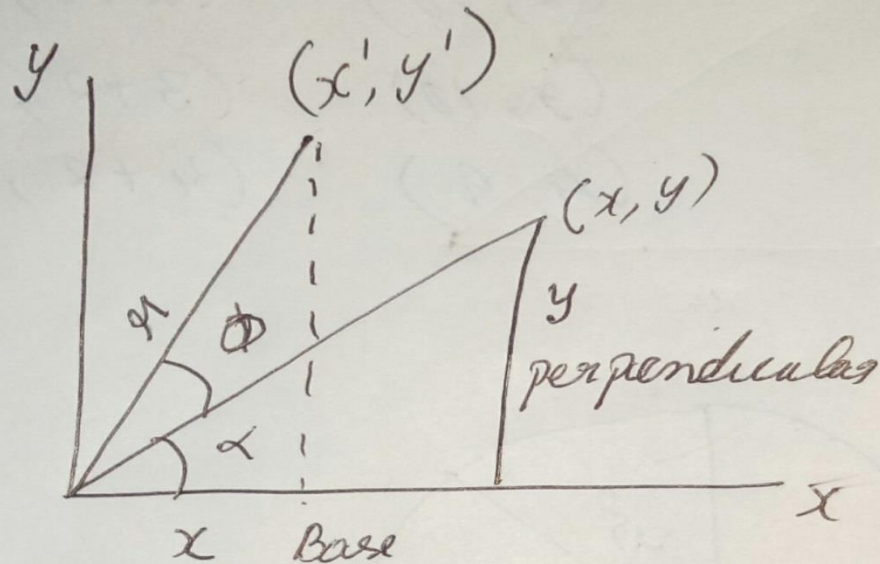 y
(x', y')
(x, y)
r
Φ
y
perpendicular
α
x
x Base